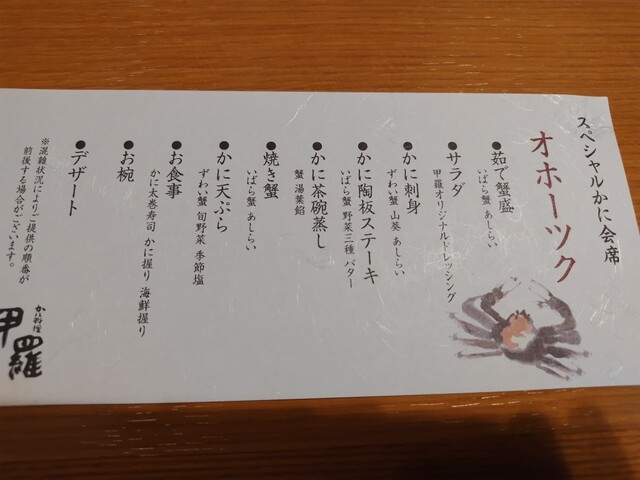 スペシャルかに会席
オホーツク
●茹で蟹盛
いばら蟹 あしらい
●サラダ
甲羅オリジナルドレッシング
●かに刺身
ずわい蟹 山葵 あしらい
●かに陶板ステーキ
いばら蟹 野菜三種 バター
●かに茶碗蒸し
蟹 湯葉餡
●焼き蟹
いばら蟹 あしらい
●かに天ぷら
ずわい蟹 旬野菜 季節塩
●お食事
かに太巻寿司 かに握り 海鮮握り
●お椀
●デザート
※混雑状況によりご提供の順番が
前後する場合がございます。
かに料理
甲羅